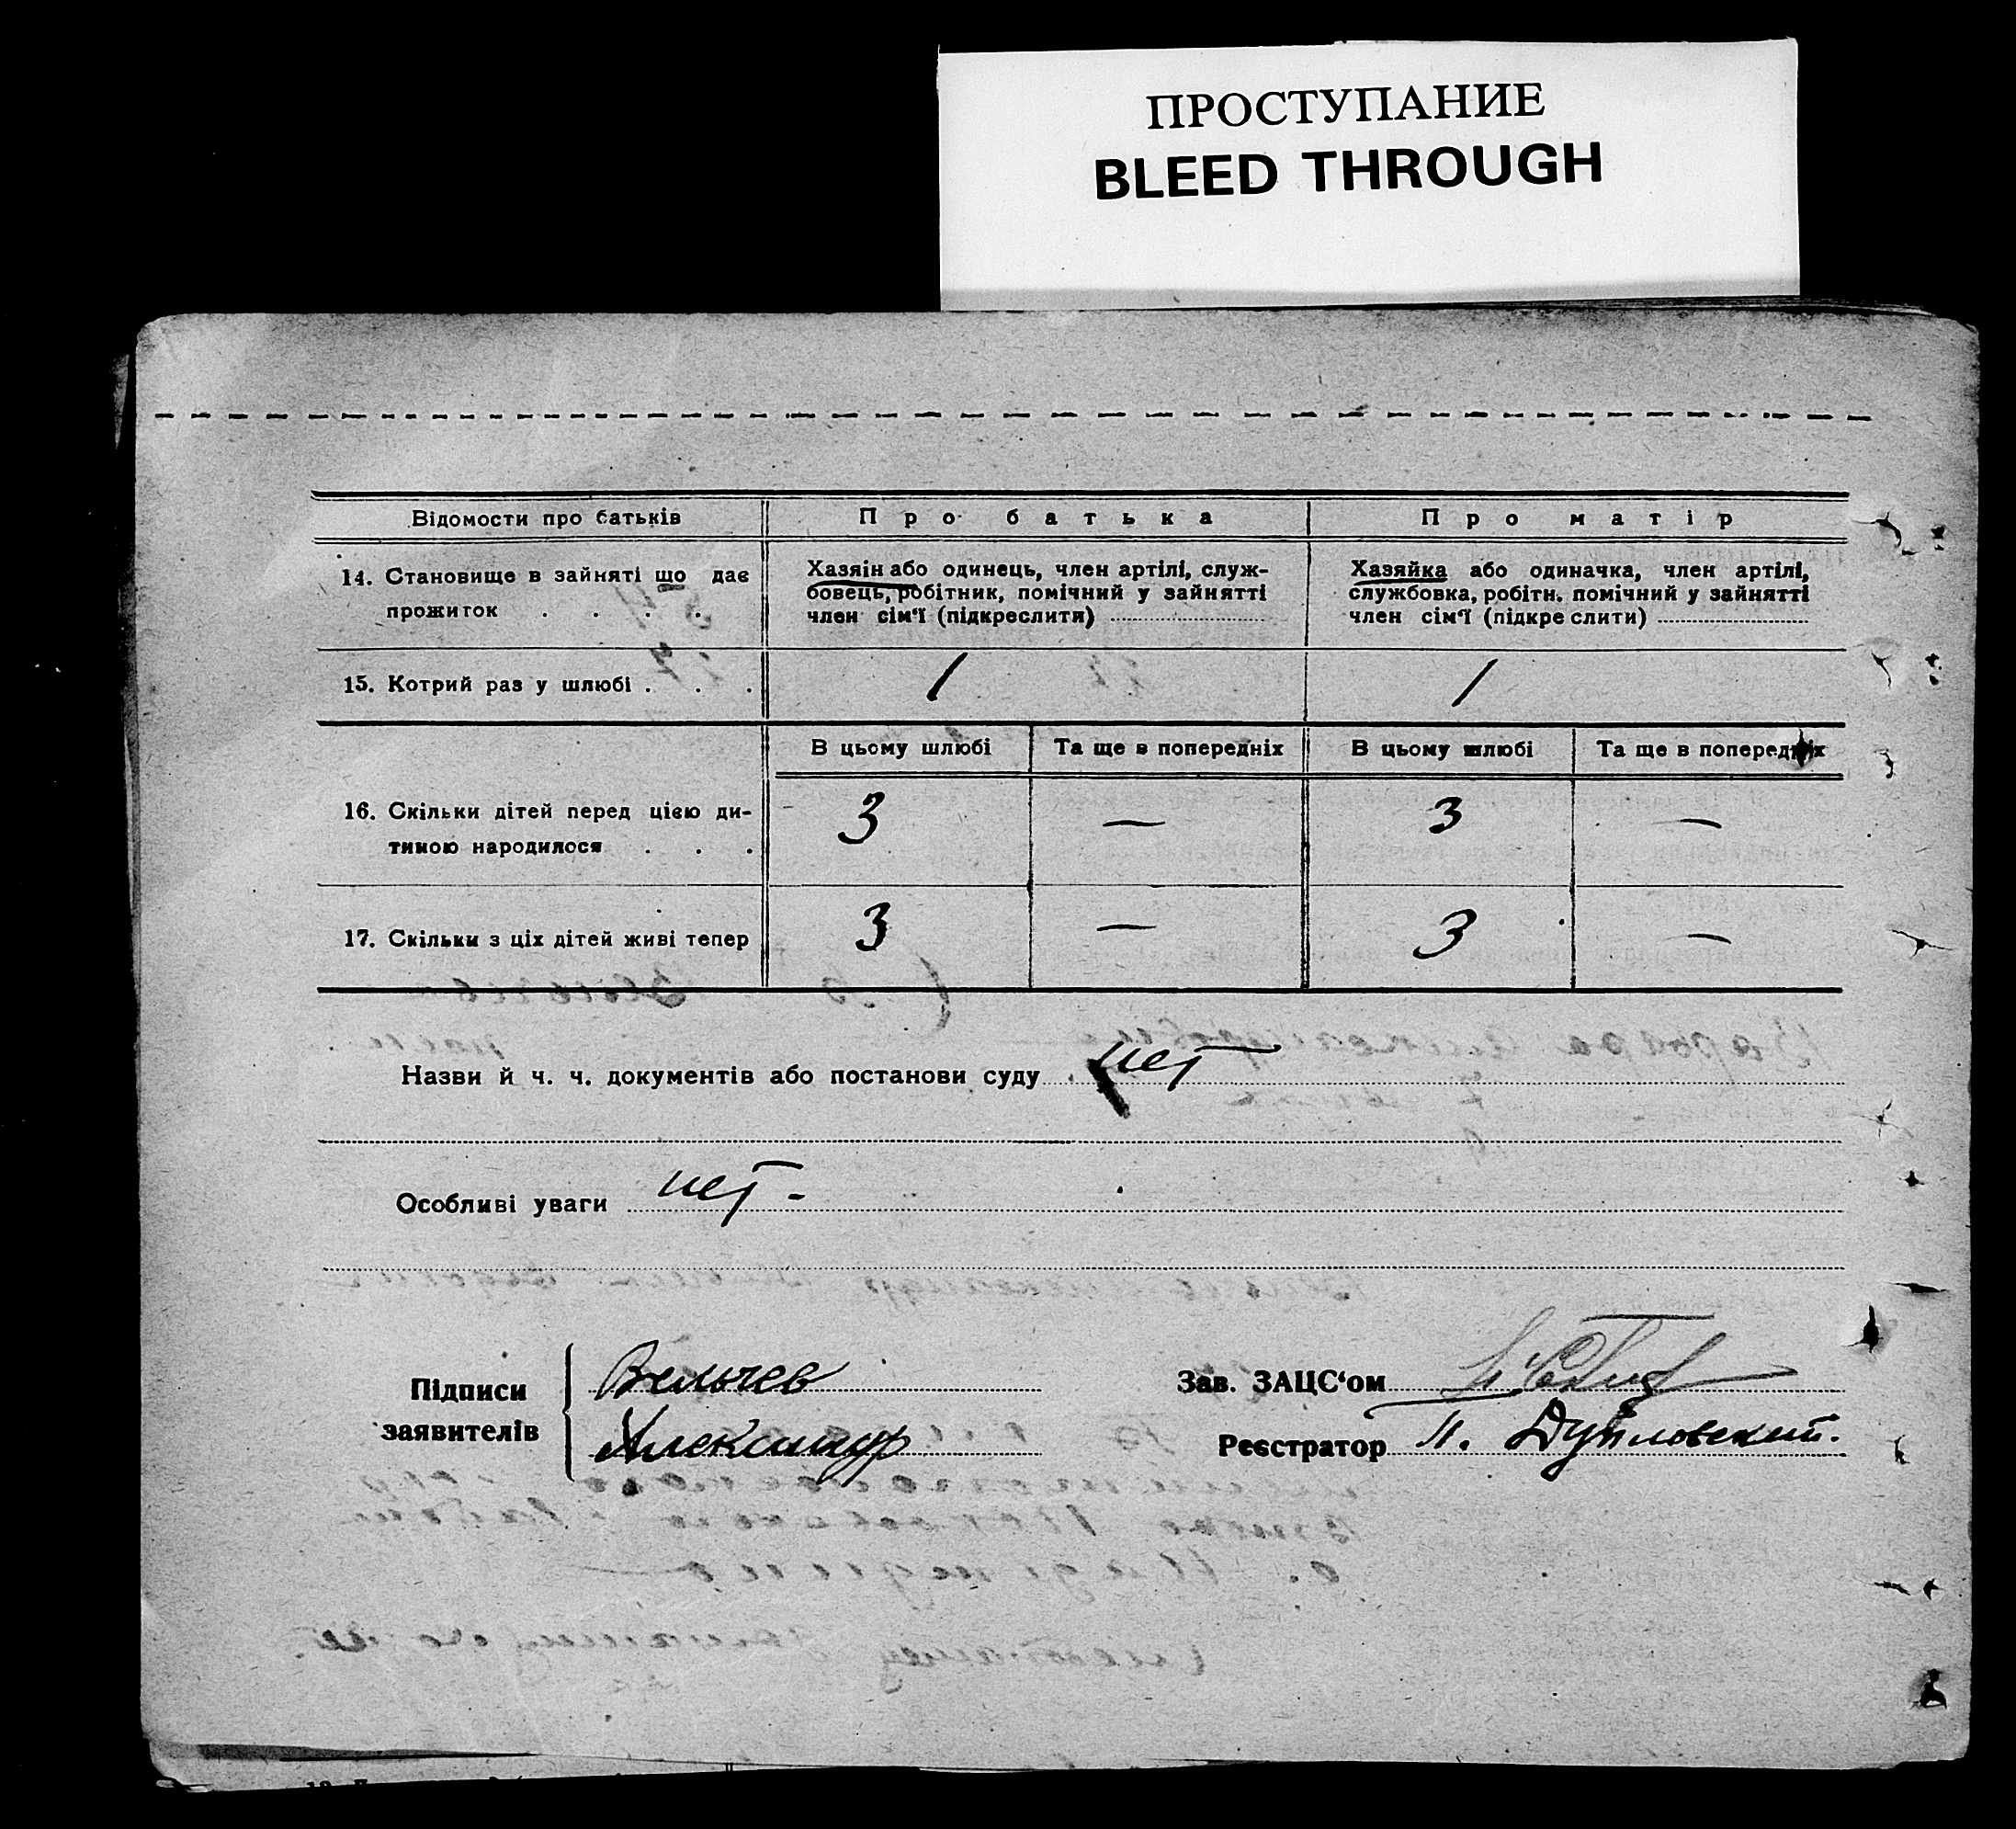 ПРОСТУПАНИЕ
BLEED THROUGH
Відомости про батьків
Про батька
Про матір
14. Становище в зайняті що дає
прожиток . . . .
Хазяін або одинець, член артілі, служ-
бовець, робітник, помічний у зайнятті
член сім'ї (підкреслити)
Хазяйка або одиначка, член артілі,
службовка, робітн. помічний у зайнятті
член сім'ї (підкреслити)
15. Котрий раз у шлюбі . . .
1
1
В цьому шлюбі
Та ще в попередніх
В цьому шлюбі
Та ще в попередніх
16. Скільки дітей перед цією ди-
тиною народилося . . .
3
—
3
—
17. Скільки з ціх дітей живі тепер
3
—
3
—
Назви й ч. ч. документів або постанови суду нет
Особливі уваги нет -
Підписи
заявителів
Вельчев
Александр
Зав. ЗАЦС'ом
Реєстратор